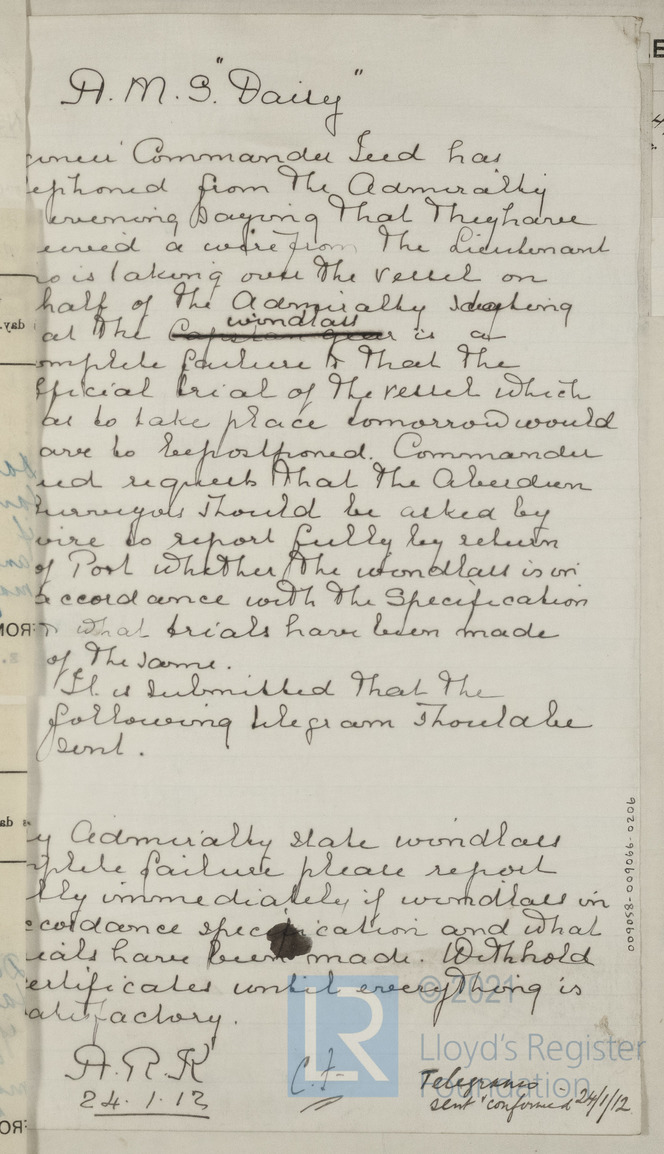 H.M.S. "Daisy"
Commander Seed has
ephoned from the Admiralty
evening saying that they have
eived a wire from the Lieutenant
o is taking over the vessel on
half of the Admiralty stating
at the windlass is a
omplete failure & that the
fficial trial of the vessel which
as to take place tomorrow would
ave to be postponed. Commander
eed requests that the Aberdeen
Surveyors should be asked by
wire to report fully by return
of Post whether the windlass is in
accordance with the Specification
& what trials have been made
of the same.
It is submitted that the
following telegram should be
sent.
y Admiralty state windlass
mplete failure please report
lly immediately if windlass in
ccordance specification and what
rials have been made. Withhold
ertificates until everything is
atisfactory.
H.R.K
24.1.12
C.F.
Telegrams
sent & confirmed 24/1/12
008058-009066-0206
LR
© 2021
Lloyd's Register
Foundation